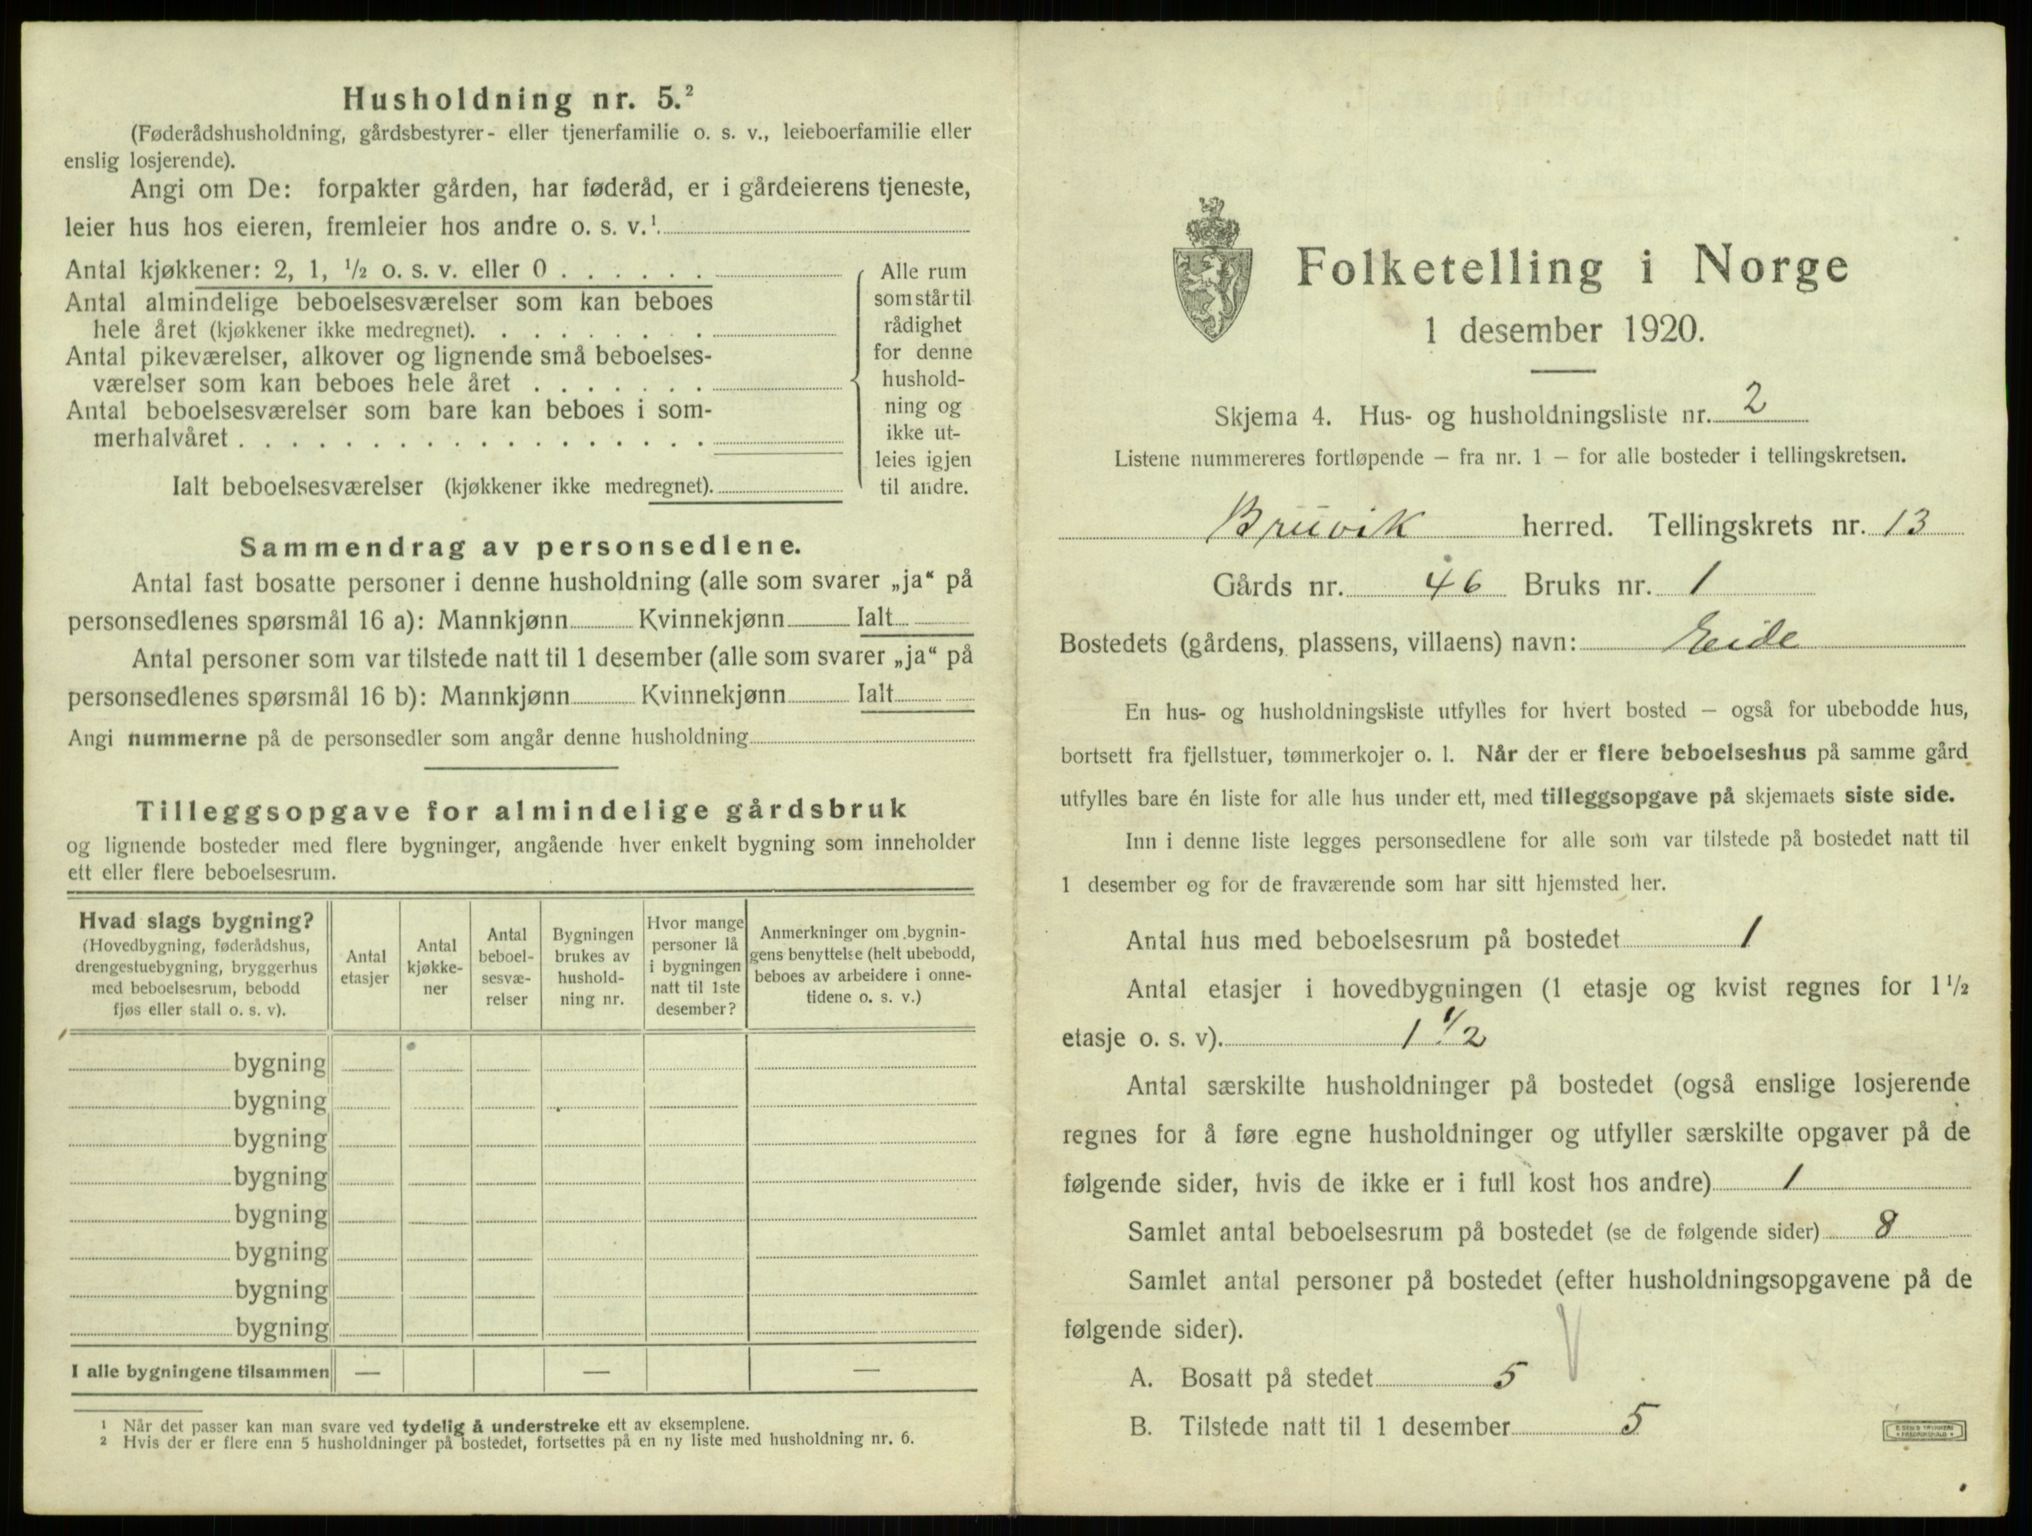 Husholdning nr. 5.²
(Føderådshusholdning, gårdsbestyrer- eller tjenerfamilie o. s. v., leieboerfamilie eller
enslig losjerende).
Angi om De: forpakter gården, har føderåd, er i gårdeierens tjeneste,
leier hus hos eieren, fremleier hos andre o. s. v.¹
Antal kjøkkener: 2, 1, ½ o. s. v. eller 0 . . . . . .
Antal almindelige beboelsesværelser som kan beboes
hele året (kjøkkener ikke medregnet). . . . . . . . .
Antal pikeværelser, alkover og lignende små beboelses-
værelser som kan beboes hele året . . . . . . .
Antal beboelsesværelser som bare kan beboes i som-
merhalvåret . . . . . . . . . . . . . . . . . .
Ialt beboelsesværelser (kjøkkener ikke medregnet).
Alle rum
som står til
rådighet
for denne
hushold-
ning og
ikke ut-
leies igjen
til andre.
Sammendrag av personsedlene.
Antal fast bosatte personer i denne husholdning (alle som svarer „ja“ på
personsedlenes spørsmål 16 a): Mannkjønn Kvinnekjønn Ialt
Antal personer som var tilstede natt til 1 desember (alle som svarer „ja“ på
personsedlenes spørsmål 16 b): Mannkjønn Kvinnekjønn Ialt
Angi nummerne på de personsedler som angår denne husholdning
Tilleggsopgave for almindelige gårdsbruk
og lignende bosteder med flere bygninger, angående hver enkelt bygning som inneholder
ett eller flere beboelsesrum.
Hvad slags bygning?
(Hovedbygning, føderådshus,
drengestuebygning, bryggerhus
med beboelsesrum, bebodd
fjøs eller stall o. s. v).
Antal
etasjer
Antal
kjøkke-
ner
Antal
beboel-
sesvæ-
relser
Bygningen
brukes av
hushold-
ning nr.
Hvor mange
personer lå
i bygningen
natt til 1ste
desember?
Anmerkninger om bygnin-
gens benyttelse (helt ubebodd,
beboes av arbeidere i onne-
tidene o. s. v.)
bygning
bygning
bygning
bygning
bygning
bygning
bygning
bygning
I alle bygningene tilsammen — — —
¹ Når det passer kan man svare ved tydelig å understreke ett av eksemplene.
² Hvis der er flere enn 5 husholdninger på bostedet, fortsettes på en ny liste med husholdning nr. 6.
Folketelling i Norge
1 desember 1920.
Skjema 4. Hus- og husholdningsliste nr. 2
Listene nummereres fortløpende — fra nr. 1 — for alle bosteder i tellingskretsen.
Bruvik herred. Tellingskrets nr. 13
Gårds nr. 46 Bruks nr. 1
Bostedets (gårdens, plassens, villaens) navn: Eide
En hus- og husholdningsliste utfylles for hvert bosted — også for ubebodde hus,
bortsett fra fjellstuer, tømmerkojer o. l. Når der er flere beboelseshus på samme gård
utfylles bare én liste for alle hus under ett, med tilleggsopgave på skjemaets siste side.
Inn i denne liste legges personsedlene for alle som var tilstede på bostedet natt til
1 desember og for de fraværende som har sitt hjemsted her.
Antal hus med beboelsesrum på bostedet 1
Antal etasjer i hovedbygningen (1 etasje og kvist regnes for 1½
etasje o. s. v). 1 ½
Antal særskilte husholdninger på bostedet (også enslige losjerende
regnes for å føre egne husholdninger og utfyller særskilte opgaver på de
følgende sider, hvis de ikke er i full kost hos andre) 1
Samlet antal beboelsesrum på bostedet (se de følgende sider) 8
Samlet antal personer på bostedet (efter husholdningsopgavene på de
følgende sider).
A. Bosatt på stedet 5
B. Tilstede natt til 1 desember 5